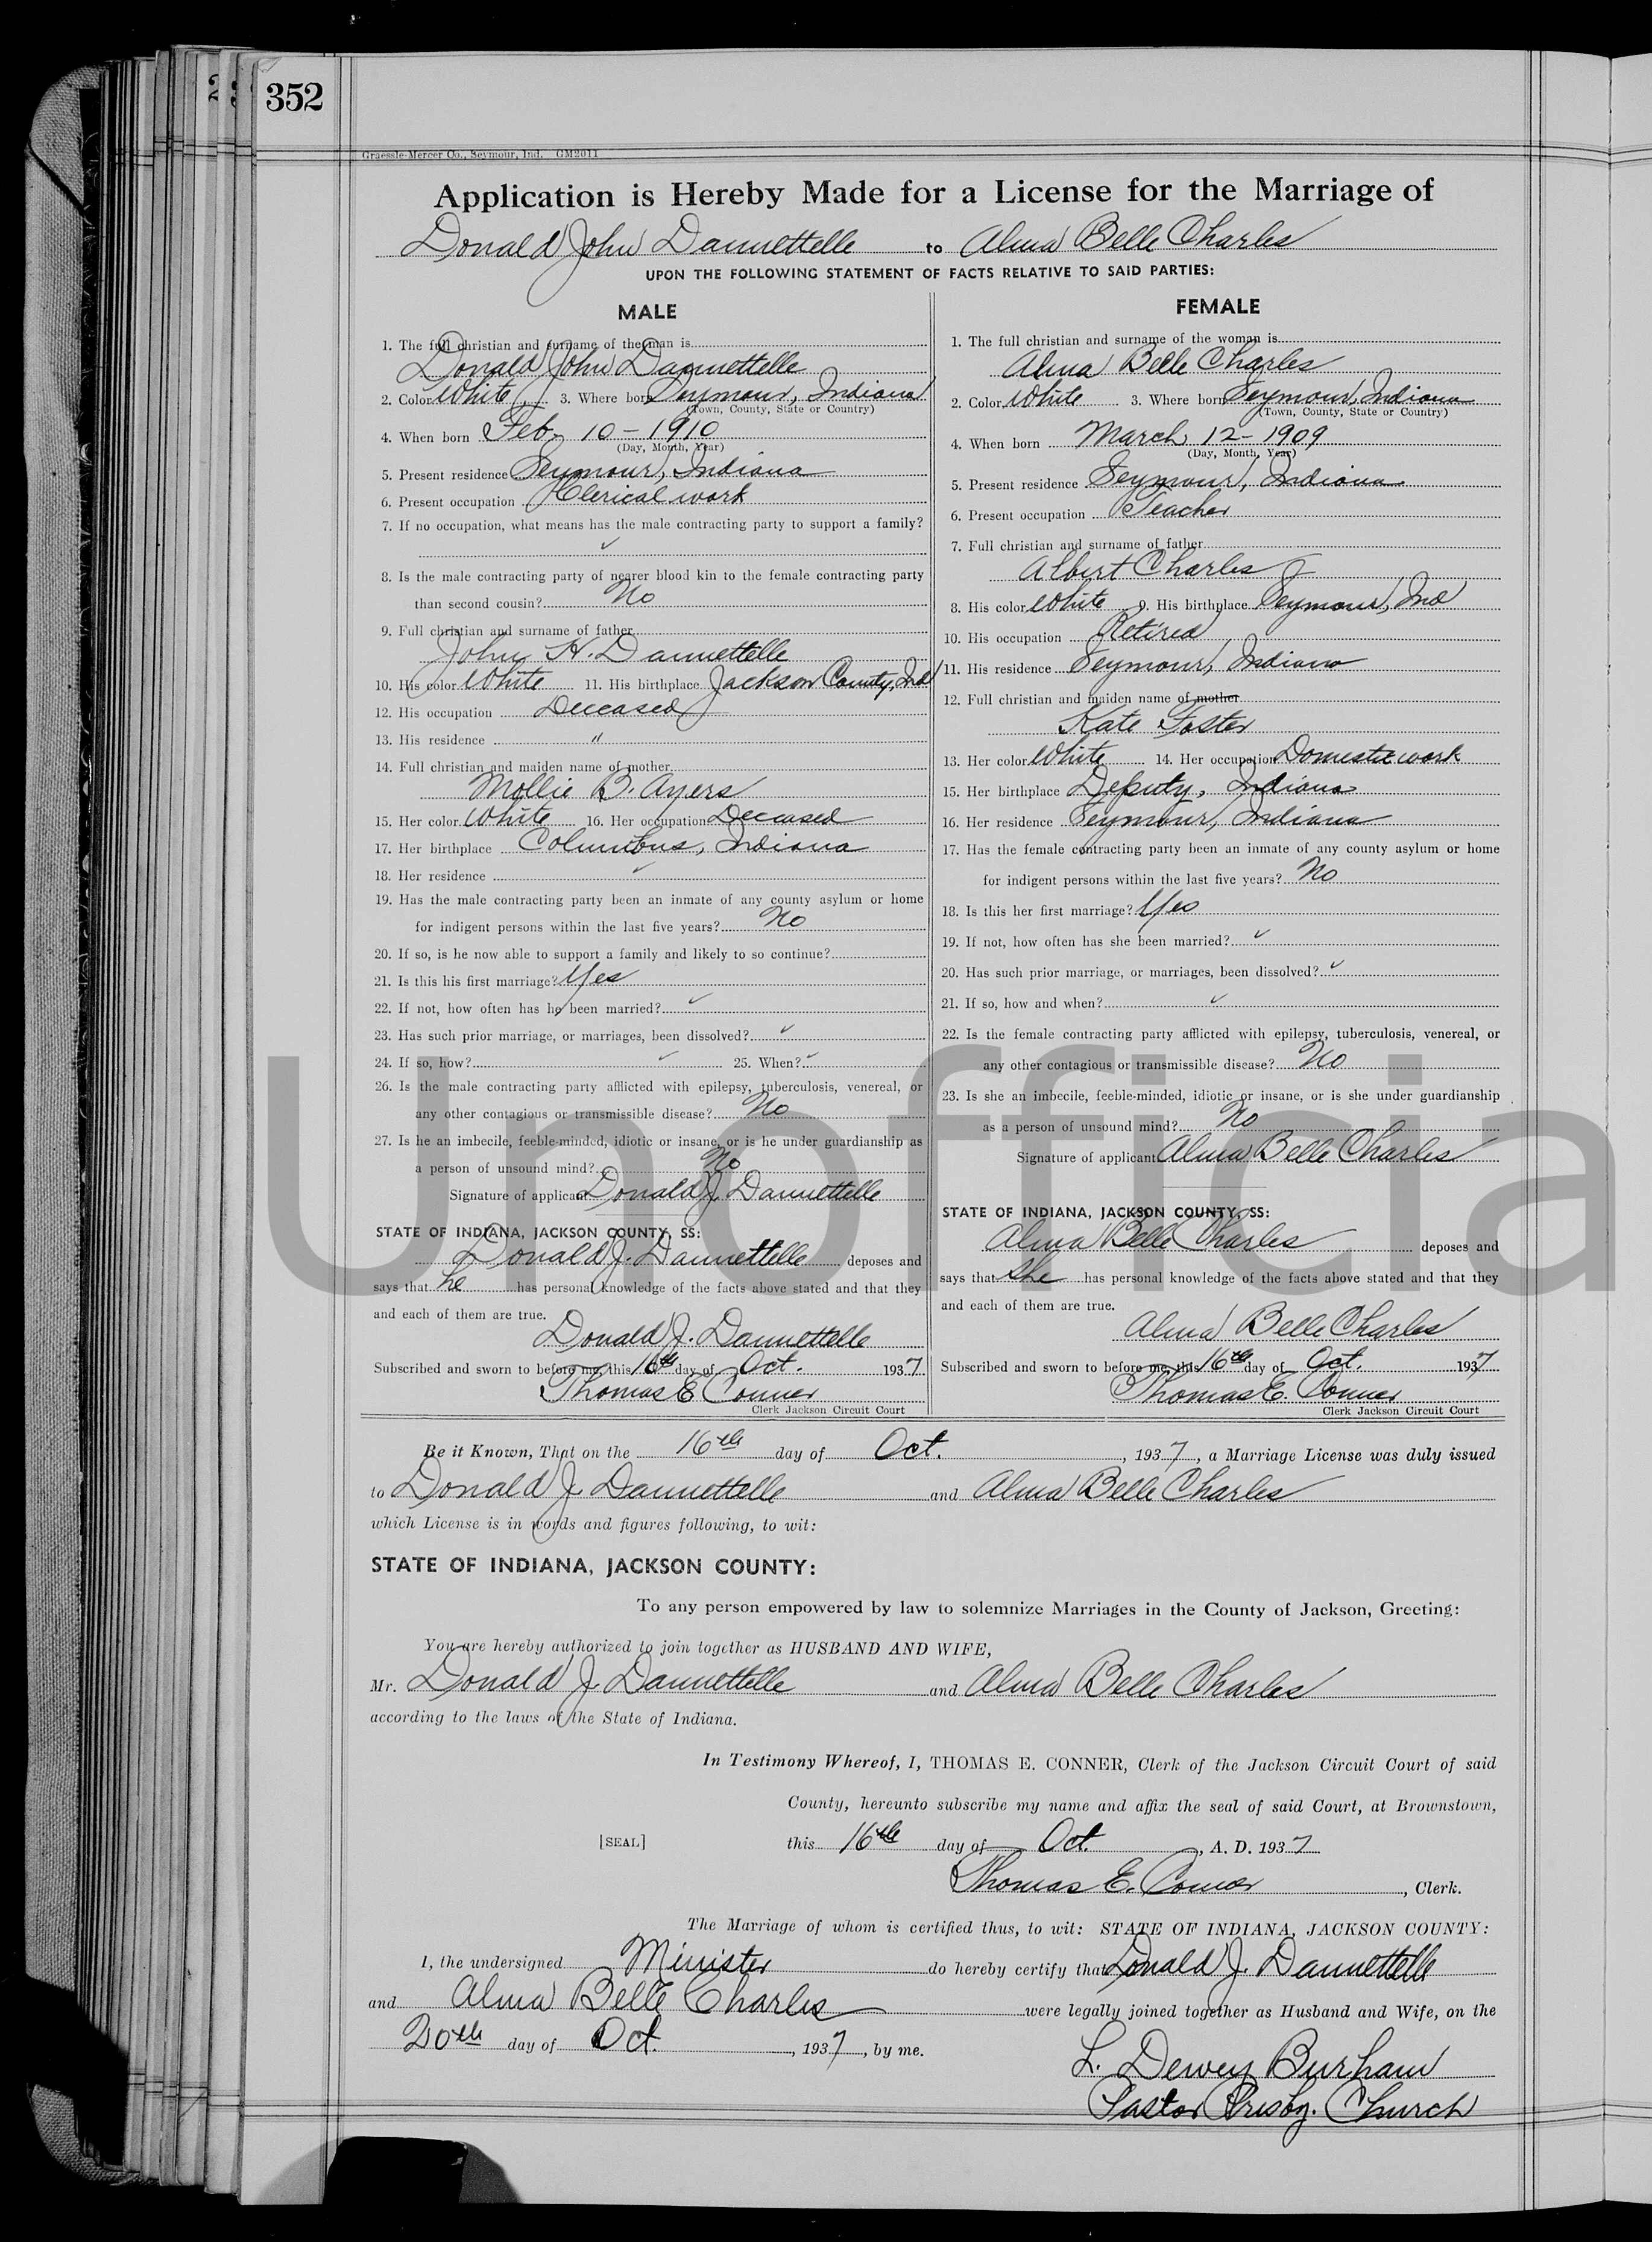 352
Graessle-Mercer Co., Seymour, Ind. GM2011
Application is Hereby Made for a License for the Marriage of
Donald John Dannettelle to Alma Belle Charles
UPON THE FOLLOWING STATEMENT OF FACTS RELATIVE TO SAID PARTIES:
MALE
1. The full christian and surname of the man is
Donald John Dannettelle
2. Color White 3. Where born Seymour, Indiana
(Town, County, State or Country)
4. When born Feb. 10 - 1910
(Day, Month, Year)
5. Present residence Seymour, Indiana
6. Present occupation Clerical work
7. If no occupation, what means has the male contracting party to support a family?
✓
8. Is the male contracting party of nearer blood kin to the female contracting party
than second cousin? No
9. Full christian and surname of father
John H. Dannettelle
10. His color White 11. His birthplace Jackson County, Ind
12. His occupation Deceased
13. His residence "
14. Full christian and maiden name of mother
Mollie B. Ayers
15. Her color White 16. Her occupation Deceased
17. Her birthplace Columbus, Indiana
18. Her residence ✓
19. Has the male contracting party been an inmate of any county asylum or home
for indigent persons within the last five years? No
20. If so, is he now able to support a family and likely to so continue?
21. Is this his first marriage? Yes
22. If not, how often has he been married? ✓
23. Has such prior marriage, or marriages, been dissolved? ✓
24. If so, how? ✓ 25. When? ✓
26. Is the male contracting party afflicted with epilepsy, tuberculosis, venereal, or
any other contagious or transmissible disease? No
27. Is he an imbecile, feeble-minded, idiotic or insane, or is he under guardianship as
a person of unsound mind? No
Signature of applicant Donald J. Dannettelle
STATE OF INDIANA, JACKSON COUNTY, SS:
Donald J. Dannettelle deposes and
says that he has personal knowledge of the facts above stated and that they
and each of them are true.
Donald J. Dannettelle
Subscribed and sworn to before me, this 16th day of Oct. 1937
Thomas E Conner
Clerk Jackson Circuit Court
FEMALE
1. The full christian and surname of the woman is
Alma Belle Charles
2. Color White 3. Where born Seymour, Indiana
(Town, County, State or Country)
4. When born March 12 - 1909
(Day, Month, Year)
5. Present residence Seymour, Indiana
6. Present occupation Teacher
7. Full christian and surname of father
Albert Charles
8. His color White 9. His birthplace Seymour, Ind
10. His occupation Retired
11. His residence Seymour, Indiana
12. Full christian and maiden name of mother
Kate Foster
13. Her color White 14. Her occupation Domestic work
15. Her birthplace Deputy, Indiana
16. Her residence Seymour, Indiana
17. Has the female contracting party been an inmate of any county asylum or home
for indigent persons within the last five years? No
18. Is this her first marriage? Yes
19. If not, how often has she been married? ✓
20. Has such prior marriage, or marriages, been dissolved? ✓
21. If so, how and when? ✓
22. Is the female contracting party afflicted with epilepsy, tuberculosis, venereal, or
any other contagious or transmissible disease? No
23. Is she an imbecile, feeble-minded, idiotic or insane, or is she under guardianship
as a person of unsound mind? No
Signature of applicant Alma Belle Charles
STATE OF INDIANA, JACKSON COUNTY, SS:
Alma Belle Charles deposes and
says that she has personal knowledge of the facts above stated and that they
and each of them are true.
Alma Belle Charles
Subscribed and sworn to before me, this 16th day of Oct. 1937
Thomas E. Conner
Clerk Jackson Circuit Court
Be it Known, That on the 16th day of Oct. , 1937, a Marriage License was duly issued
to Donald J. Dannettelle and Alma Belle Charles
which License is in words and figures following, to wit:
STATE OF INDIANA, JACKSON COUNTY:
To any person empowered by law to solemnize Marriages in the County of Jackson, Greeting:
You are hereby authorized to join together as HUSBAND AND WIFE,
Mr. Donald J. Dannettelle and Alma Belle Charles
according to the laws of the State of Indiana.
In Testimony Whereof, I, THOMAS E. CONNER, Clerk of the Jackson Circuit Court of said
County, hereunto subscribe my name and affix the seal of said Court, at Brownstown,
[SEAL] this 16th day of Oct. , A. D. 1937
Thomas E. Conner , Clerk.
The Marriage of whom is certified thus, to wit: STATE OF INDIANA, JACKSON COUNTY:
I, the undersigned Minister do hereby certify that Donald J. Dannettelle
and Alma Belle Charles were legally joined together as Husband and Wife, on the
20th day of Oct. , 1937, by me.
L. Dewey Burham
Pastor Presby. Church
Unofficia